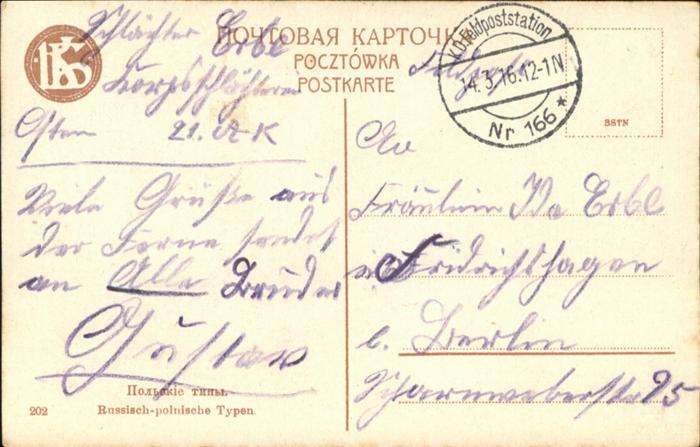 ПОЧТОВАЯ КАРТОЧКА
POCZTÓWKA
POSTKARTE
Schlächter Erbe
Korpsschlächterei
Osten 21. A-K
Viele Grüße aus
der Ferne sendet
an Alle Bruder
Gustav
Польскіе типы.
202 Russisch-polnische Typen
K.D.Feldpoststation
14.3.16.12-1N
Nr 166 *
BSTN
An
Fräulein Ida Erbe
Friedrichshagen
b. Berlin
Scharnweberstr 95